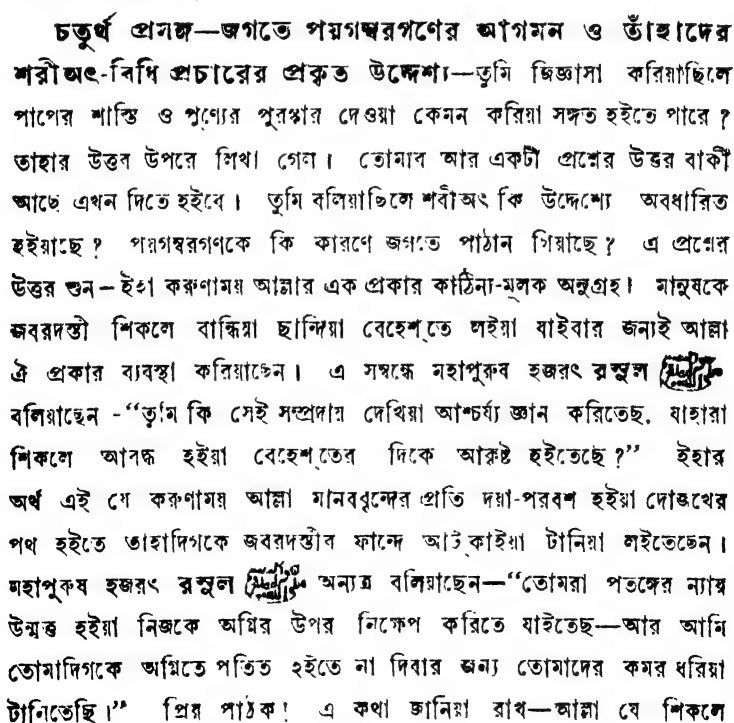 চতুর্থ প্রসঙ্গ—জগতে পয়গম্বরগণের আগমন ও তাঁহাদের
শরীঅৎ-বিধি প্রচারের প্রকৃত উদ্দেশ্য—তুমি জিজ্ঞাসা করিয়াছিলে
পাপের শাস্তি ও পুণ্যের পুরস্কার দেওয়া কেমন করিয়া সঙ্গত হইতে পারে ?
তাহার উত্তর উপরে লিখা গেল। তোমার আর একটী প্রশ্নের উত্তর বাকী
আছে এখন দিতে হইবে। তুমি বলিয়াছিলে শরীঅৎ কি উদ্দেশ্যে অবধারিত
হইয়াছে ? পয়গম্বরগণকে কি কারণে জগতে পাঠান গিয়াছে ? এ প্রশ্নের
উত্তর শুন—ইহা করুণাময় আল্লার এক প্রকার কাঠিন্য-মূলক অনুগ্রহ। মানুষকে
জবরদস্তী শিকলে বান্ধিয়া ছান্দিয়া বেহেশ্‌তে লইয়া যাইবার জন্যই আল্লা
ঐ প্রকার ব্যবস্থা করিয়াছেন। এ সম্বন্ধে মহাপুরুষ হজরৎ রসুল ﷺ
বলিয়াছেন -“তুমি কি সেই সম্প্রদায় দেখিয়া আশ্চর্য্য জ্ঞান করিতেছ, যাহারা
শিকলে আবদ্ধ হইয়া বেহেশ্‌তের দিকে আকৃষ্ট হইতেছে ?” ইহার
অর্থ এই যে করুণাময় আল্লা মানববৃন্দের প্রতি দয়া-পরবশ হইয়া দোজখের
পথ হইতে তাহাদিগকে জবরদস্তীর ফান্দে আট্‌কাইয়া টানিয়া লইতেছেন।
মহাপুরুষ হজরৎ রসুল ﷺ অন্যত্র বলিয়াছেন—“তোমরা পতঙ্গের ন্যায়
উন্মত্ত হইয়া নিজকে অগ্নির উপর নিক্ষেপ করিতে যাইতেছ—আর আমি
তোমাদিগকে অগ্নিতে পতিত হইতে না দিবার জন্য তোমাদের কমর ধরিয়া
টানিতেছি।” প্রিয় পাঠক! এ কথা জানিয়া রাখ—আল্লা যে শিকলে